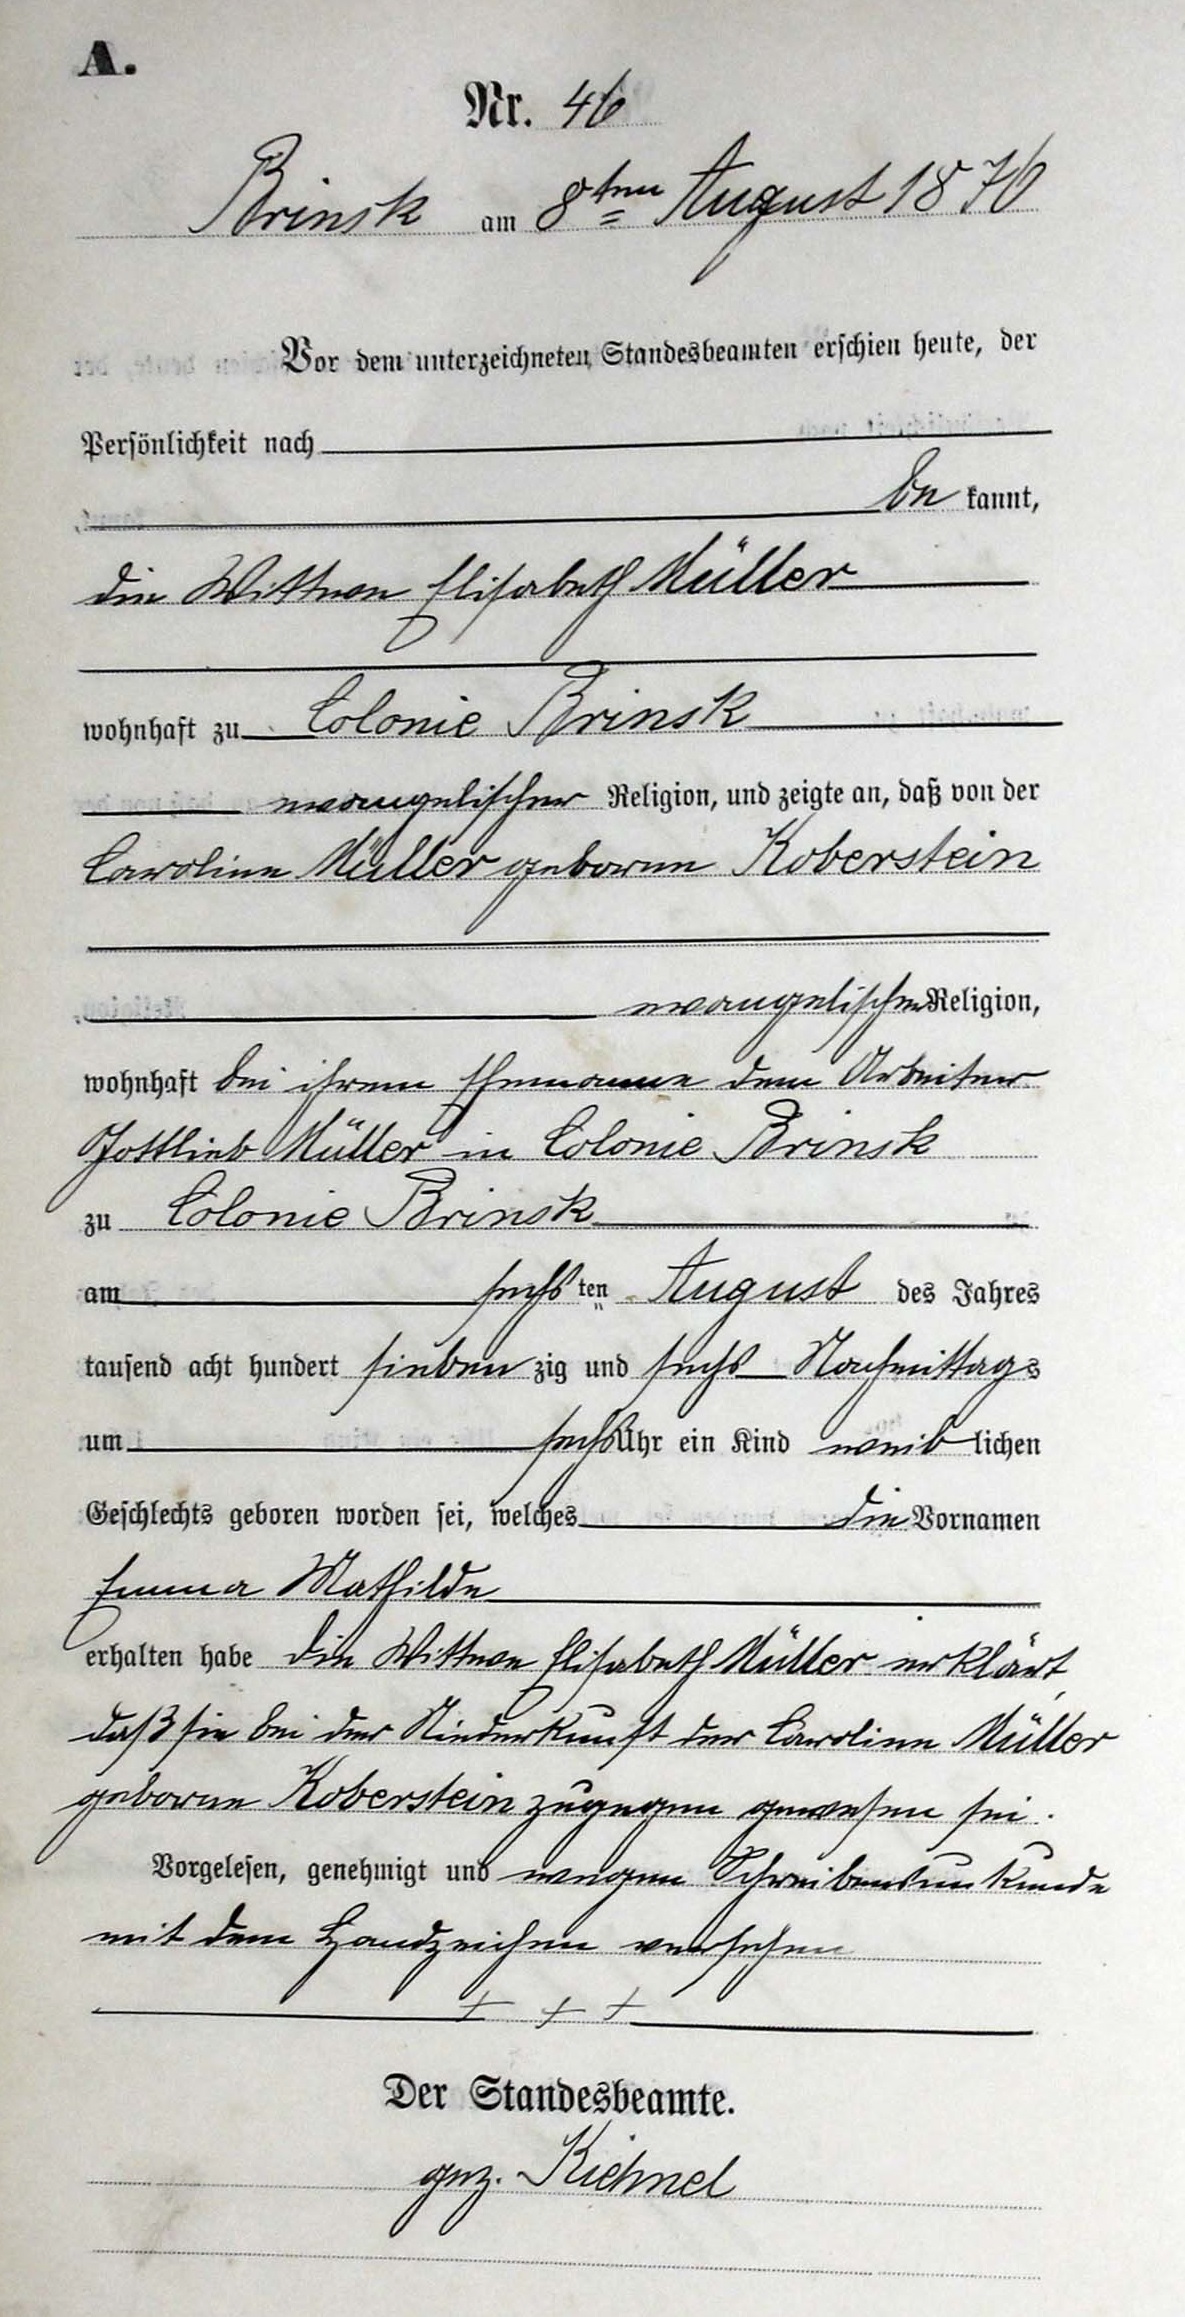 A.
Nr. 46
Brinsk am 8ten August 1876
Vor dem unterzeichneten Standesbeamten erschien heute, der
Persönlichkeit nach
be kannt,
die Wittwe Elisabeth Müller
wohnhaft zu Colonie Brinsk
evangelischer Religion, und zeigte an, daß von der
Caroline Müller geborne Koberstein
evangelischer Religion,
wohnhaft bei ihrem Ehemanne dem Arbeiter
Gottlieb Müller in Colonie Brinsk
zu Colonie Brinsk
am sechs ten August des Jahres
tausend acht hundert sieben zig und sechs Nachmittags
um sechs Uhr ein Kind weib lichen
Geschlechts geboren worden sei, welches die Vornamen
Emma Mathilde
erhalten habe die Wittwe Elisabeth Müller erklärt,
daß sie bei der Niederkunft der Caroline Müller
geborne Koberstein zugegen gewesen sei.
Vorgelesen, genehmigt und wegen Schreibensunkunde
mit dem Handzeichen versehen
+ + +
Der Standesbeamte.
gez. Kiehnel